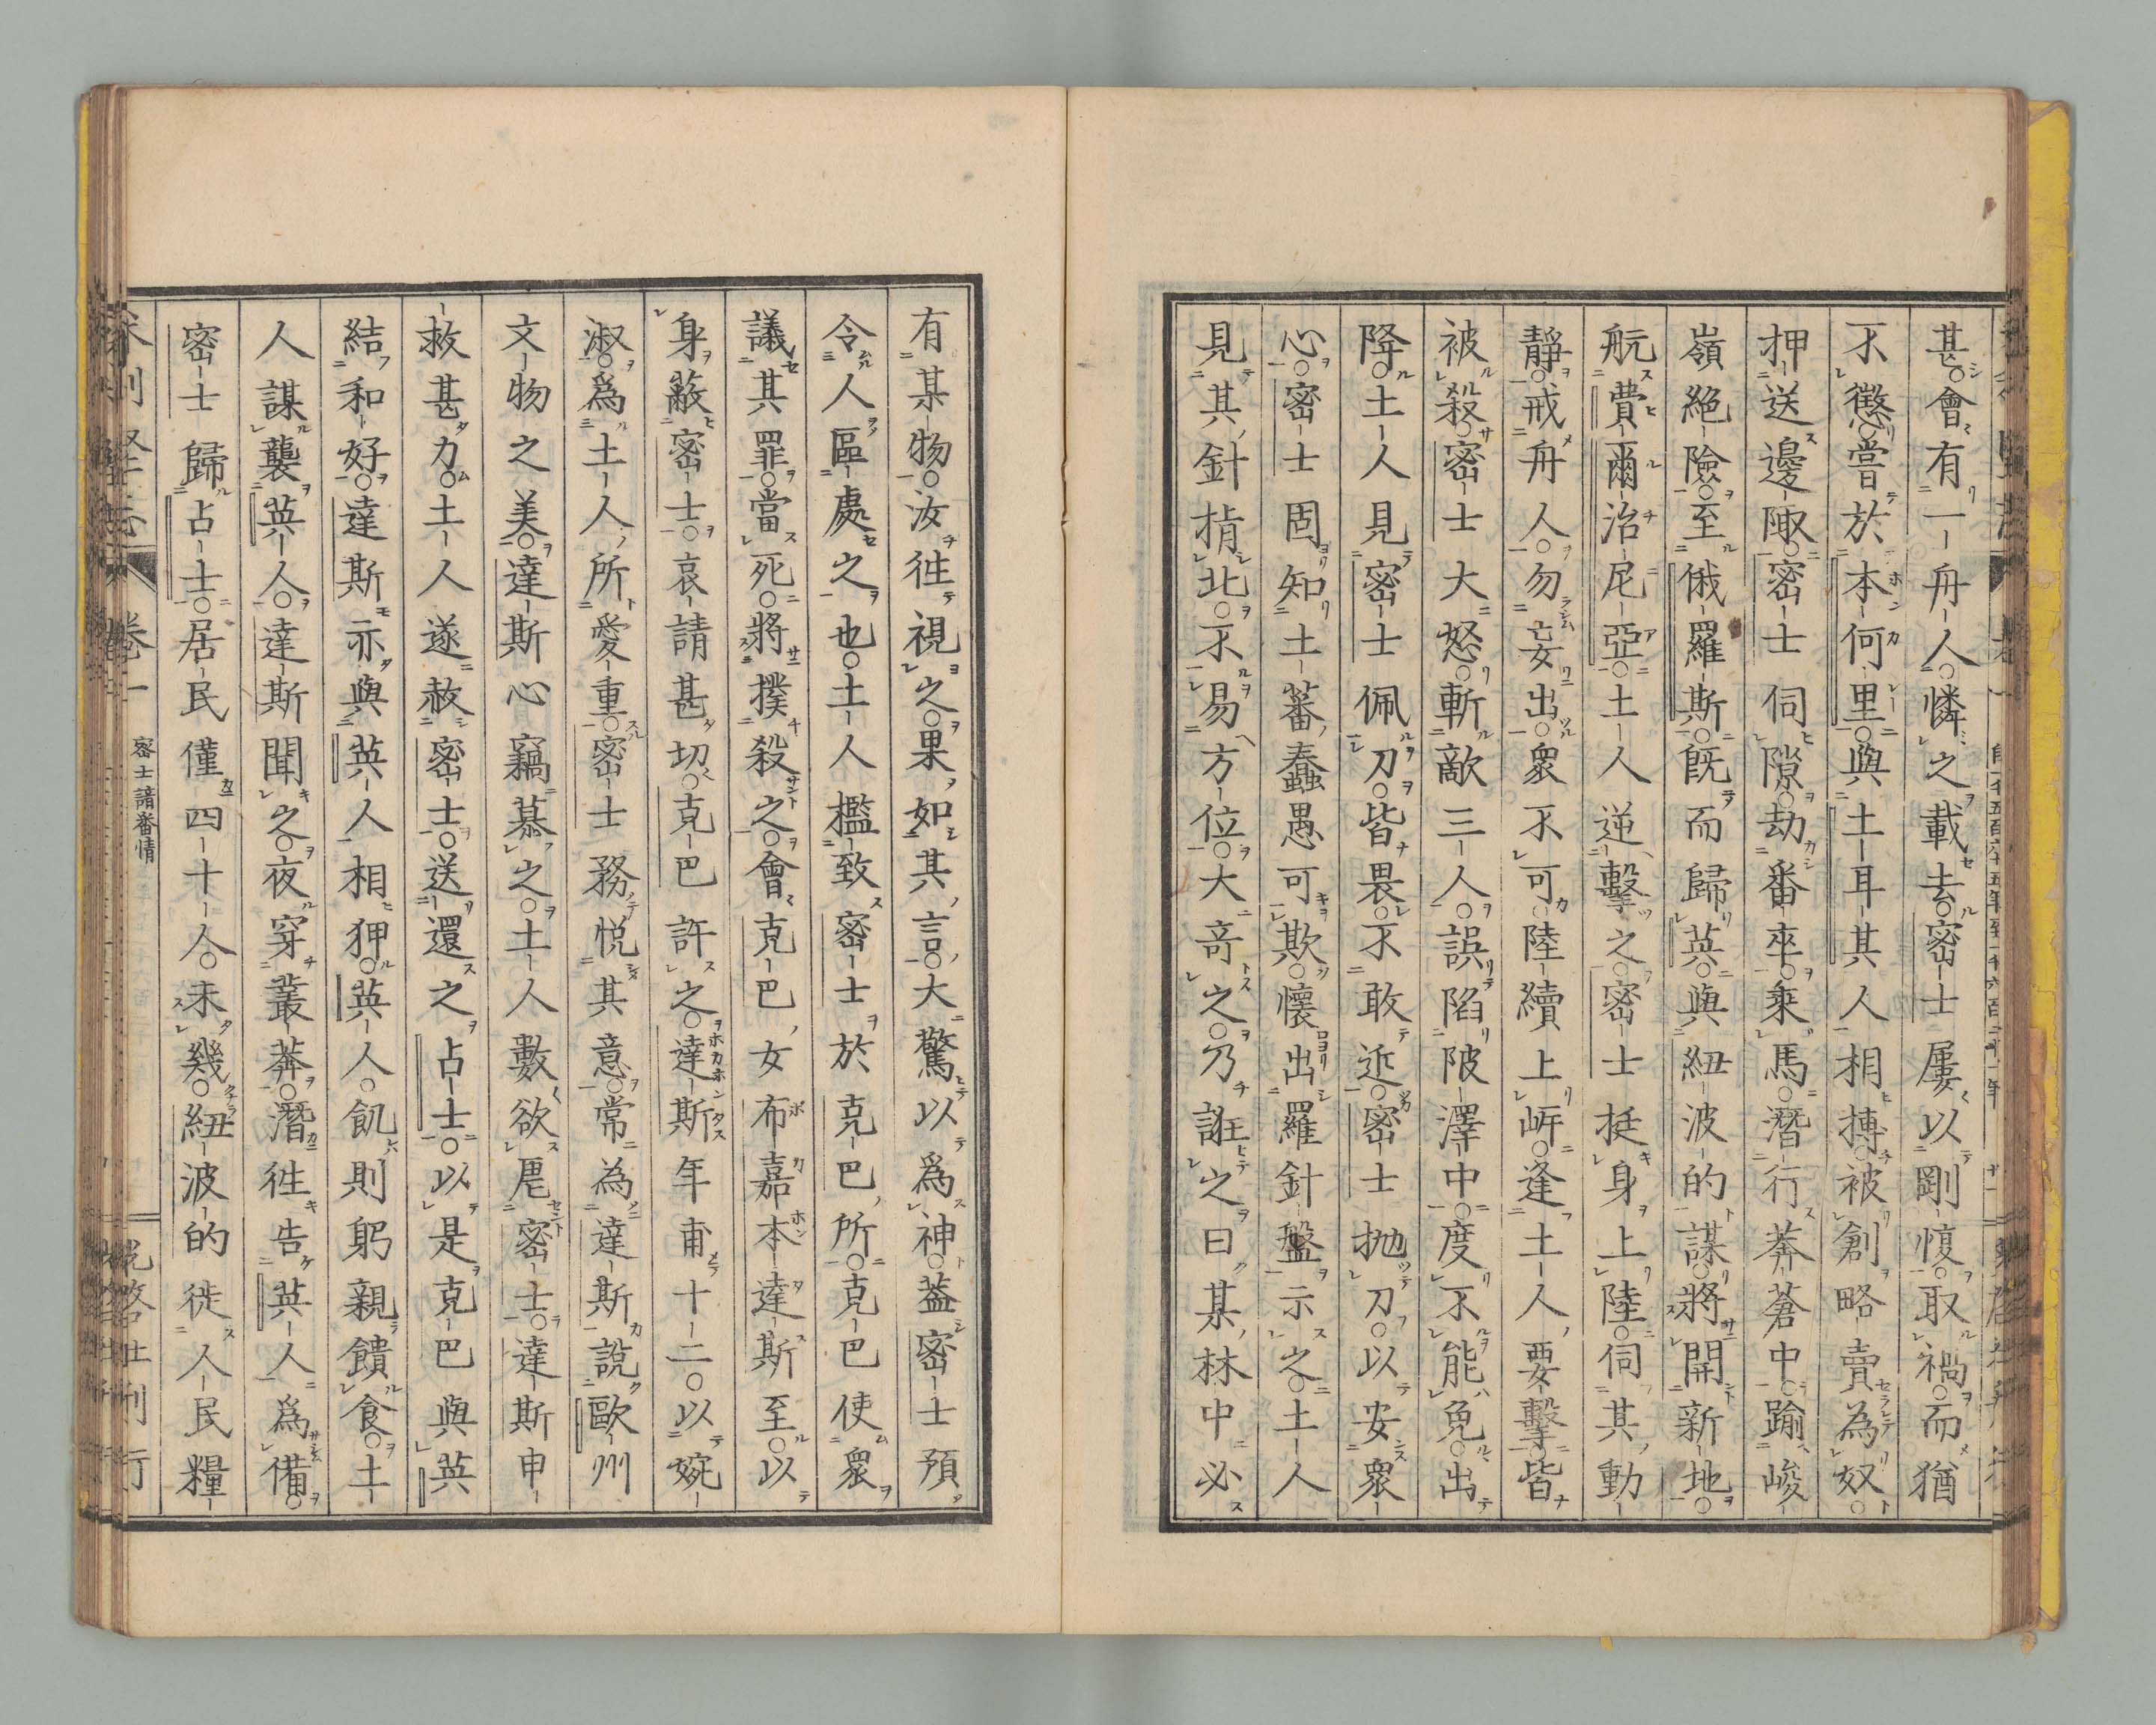 甚會有一舟人憐之載去密士屢以剛愎取禍而猶
不懲嘗於本何里與土耳其人相搏被創略賣為奴
押送邊陬密士伺隙劫番卒乘馬潛行莽蒼中踰峻
嶺絕險至俄羅斯既而歸英與紐波的謀將開新地
航費爾治尼亞土人逆擊之密士挺身上陸伺其動
靜戒舟人勿妄出眾不可陸續上岍逢土人要擊皆
被殺密士大怒斬敵三人誤陷陂澤中度不能免出
降土人見密士佩刀皆畏不敢近密士拋刀以安眾
心密士固知土蕃蠢愚可欺懷出羅針盤示之土人
見其針指北不易方位大竒之乃誑之曰某林中必
有某物汝徃視之果如其言大驚以為神葢密士預
令人區處之也土人檻致密士於克巴所克巴使眾
議其罪當死將撲殺之會克巴女布嘉本達斯至以
身蔽密士哀請甚切克巴許之達斯年甫十二以婉
淑為土人所愛重密士務悅其意常為達斯說歐州
文物之美達斯心竊慕之土人數欲戹密士達斯申
救甚力土人遂赦密士送還之占士以是克巴與英
結和好達斯亦與英人相狎英人飢則躬親饋食土
人謀襲英人達斯聞之夜穿叢莽潛徃告英人為備
密士歸占士居民僅四十人未幾紐波的徙人民糧
卷一
密士諳番情